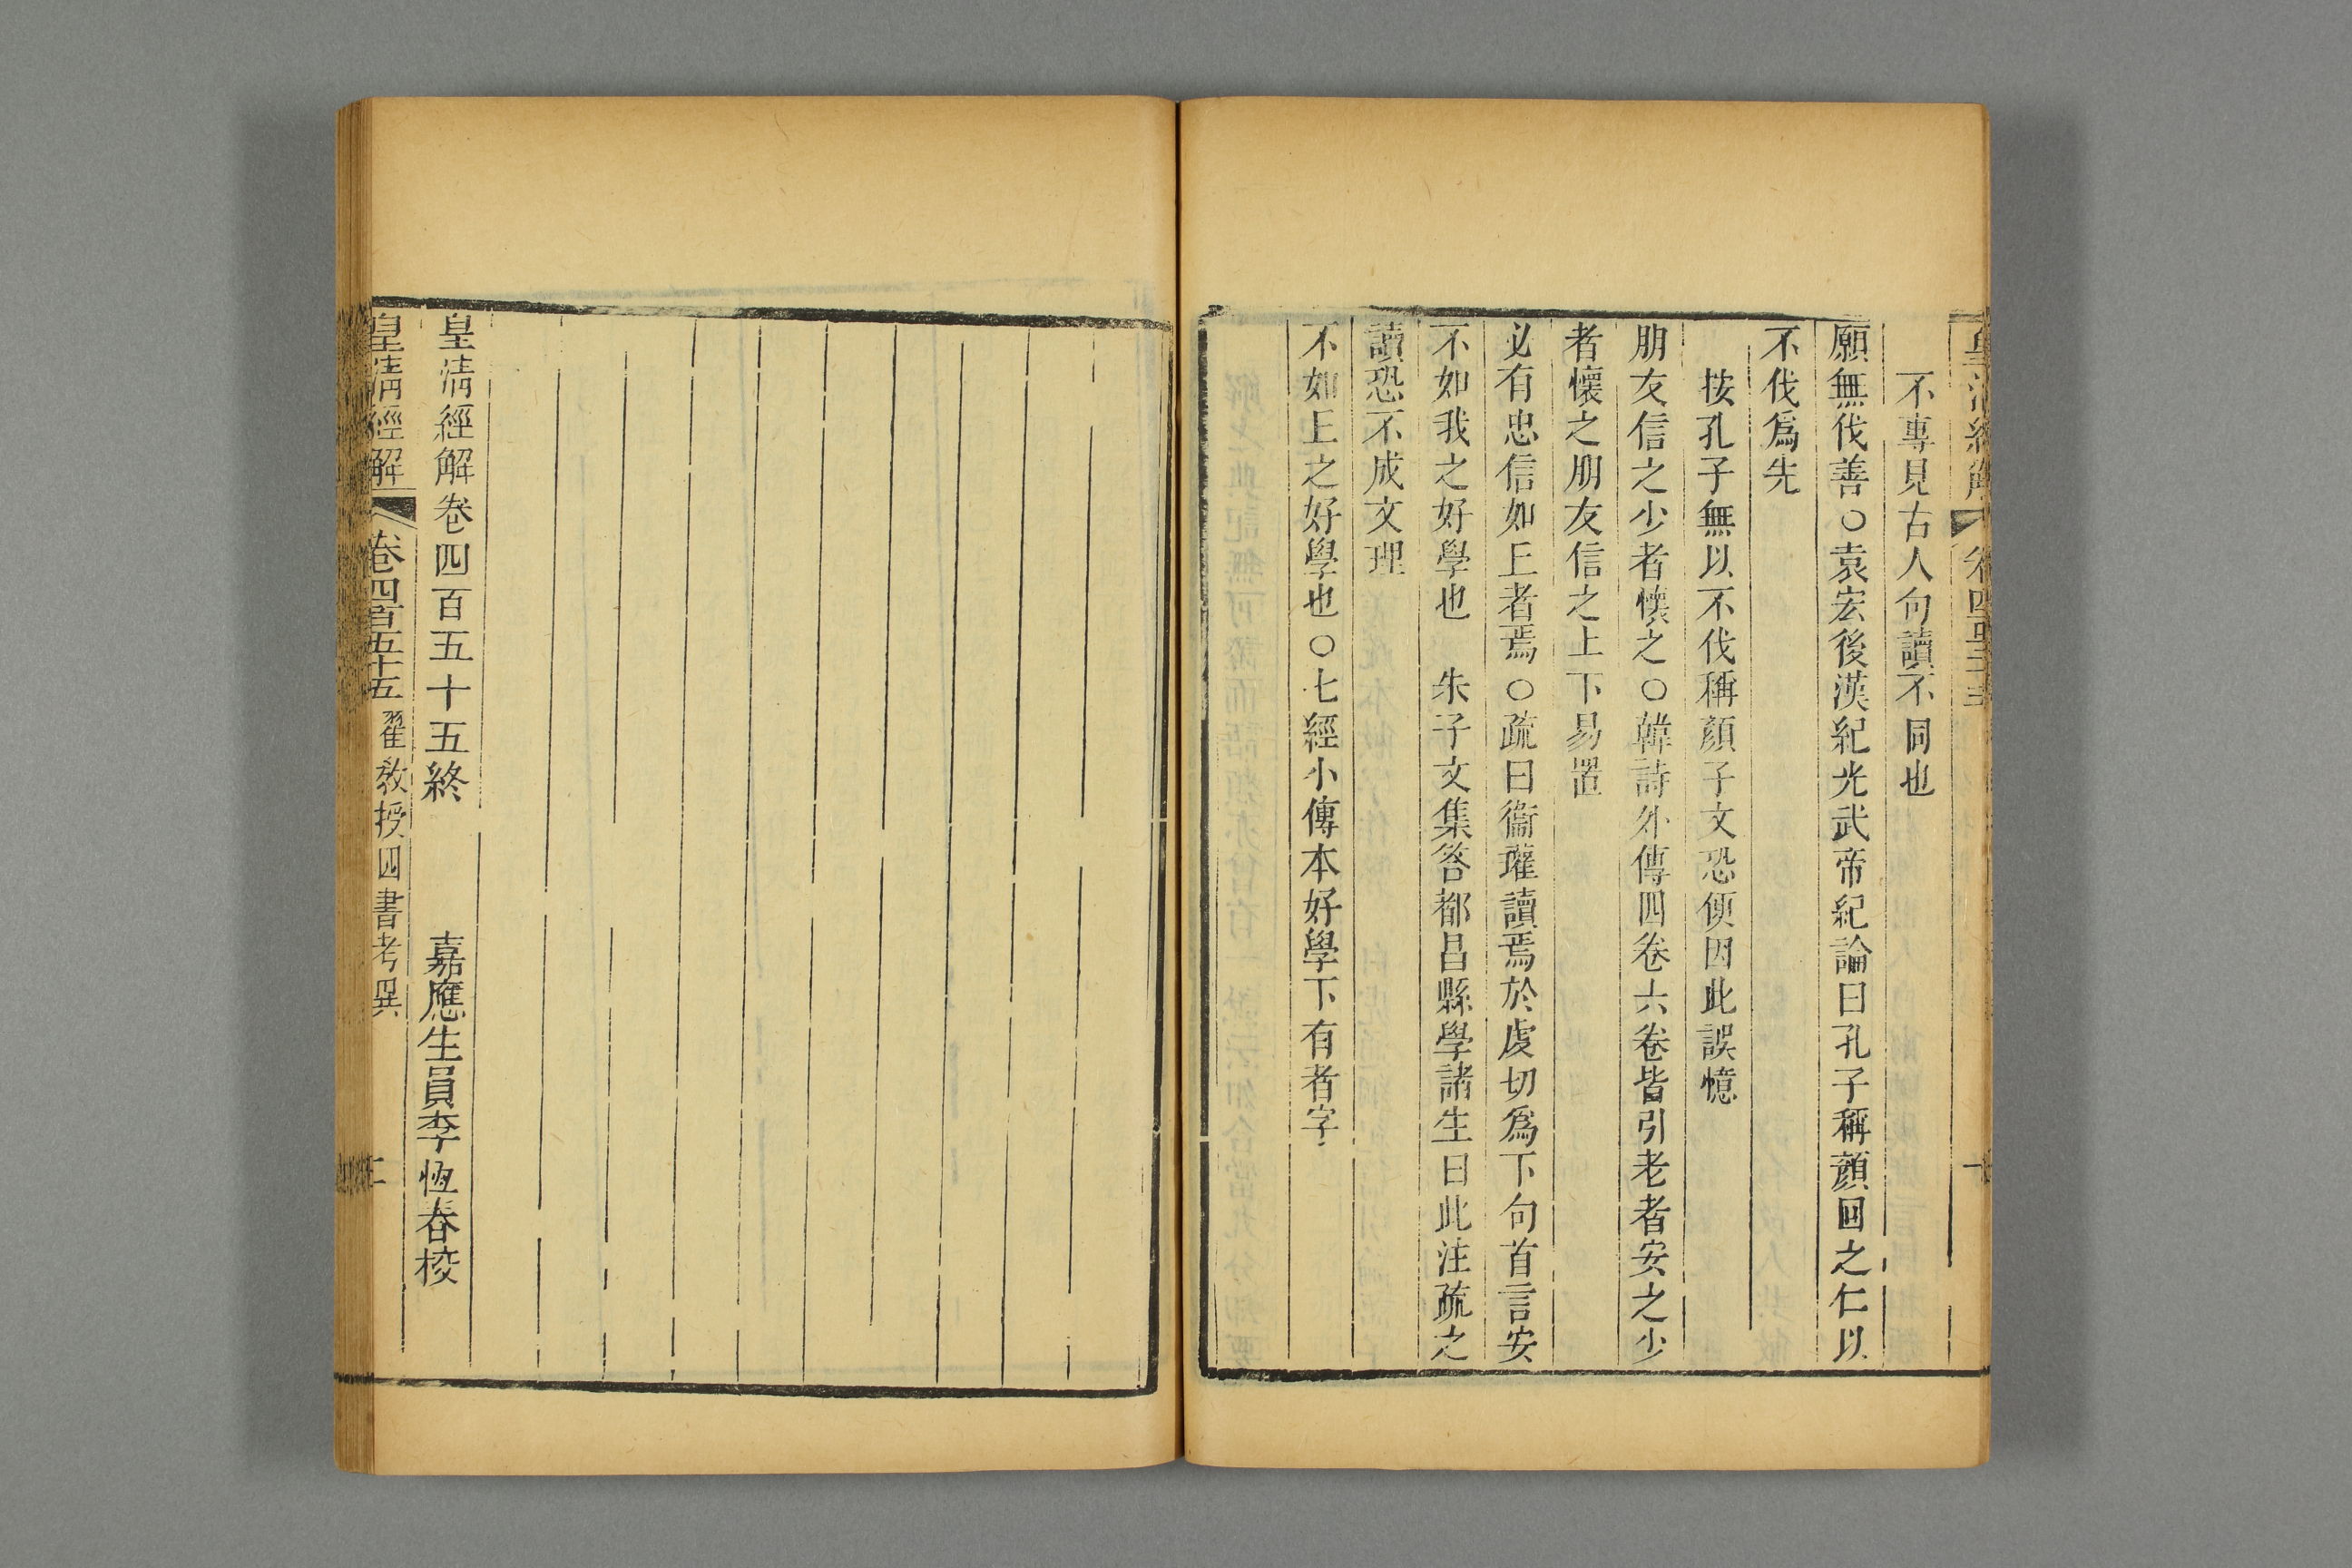 不專見古人句讀不同也
願無伐善○袁宏後漢紀光武帝紀論曰孔子稱顏回之仁以
不伐爲先
按孔子無以不伐稱顏子文恐便因此誤憶
朋友信之少者懷之○韓詩外傳四卷六卷皆引老者安之少
者懷之朋友信之上下易置
必有忠信如丘者焉○疏曰衞瓘讀焉於虔切爲下句首言安
不如我之好學也 朱子文集答都昌縣學諸生曰此注疏之
讀恐不成文理
不如丘之好學也○七經小傳本好學下有者字
皇清經解卷四百五十五終 嘉應生員李恆春校
皇清經解 卷四百五十五 翟教授四書考異